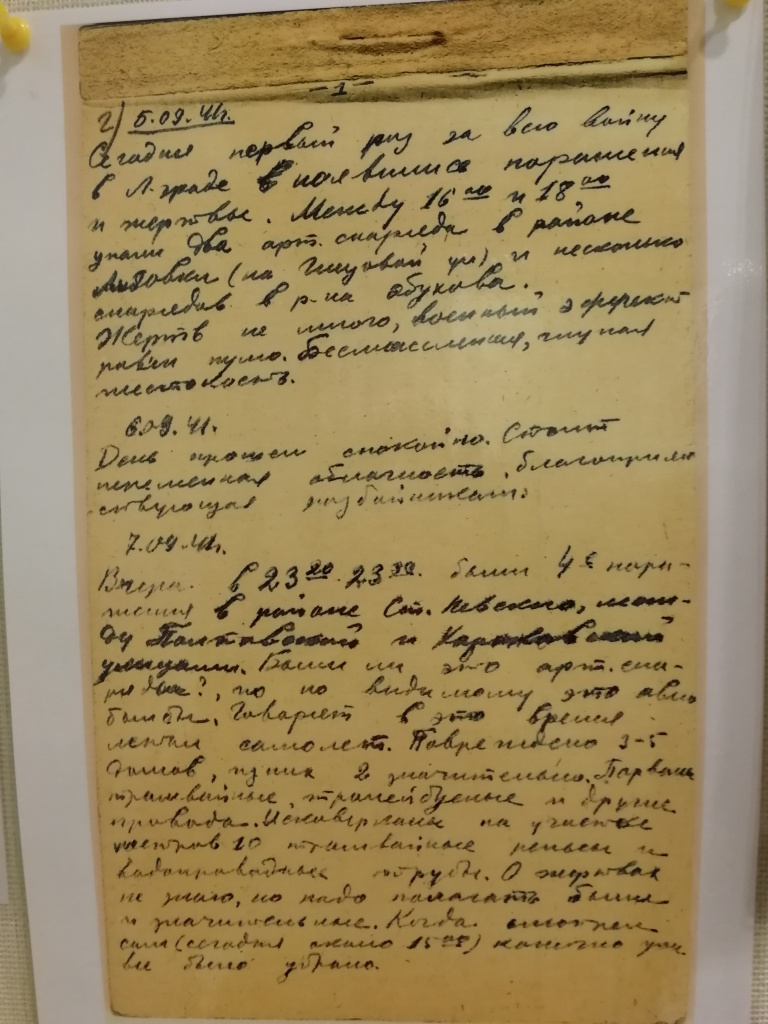 – 1 –
г) 5.09.41г.
Сегодня первый раз за всю войну
в Л-граде появились поражения
и жертвы. Между 16 00 и 18 00
упали два арт. снаряда в районе
(на ул) и несколько
снарядов в р-не Обухова.
Жертв не много, военный эффект
равен нулю. Бессмысленная, глупая
жестокость.
6.09.41.
День прошел спокойно. Стоит
переменная облачность, благоприят
ствующая разбойникам.
7.09.41г.
Вчера в 23 20 23 30. были 4е пора-
жения в районе Ст. Невского, меж-
ду Полтавской и Харьковской
улицами. Были ли это арт. сна-
ряды?, но по видимому это авио
бомбы. Говорят в это время
летал самолет. Повреждено 3-5
домов, из них 2 значительно. Порваны
трамвайные, тролейбусные и другие
провода. Исковерканы на участке
метров 10 трамвайные рельсы и
водопроводные трубы. О жертвах
не знаю, но надо полагать были
и значительные. Когда смотрел
сам (сегодня около 15 00) конечно уж
все было убрано.